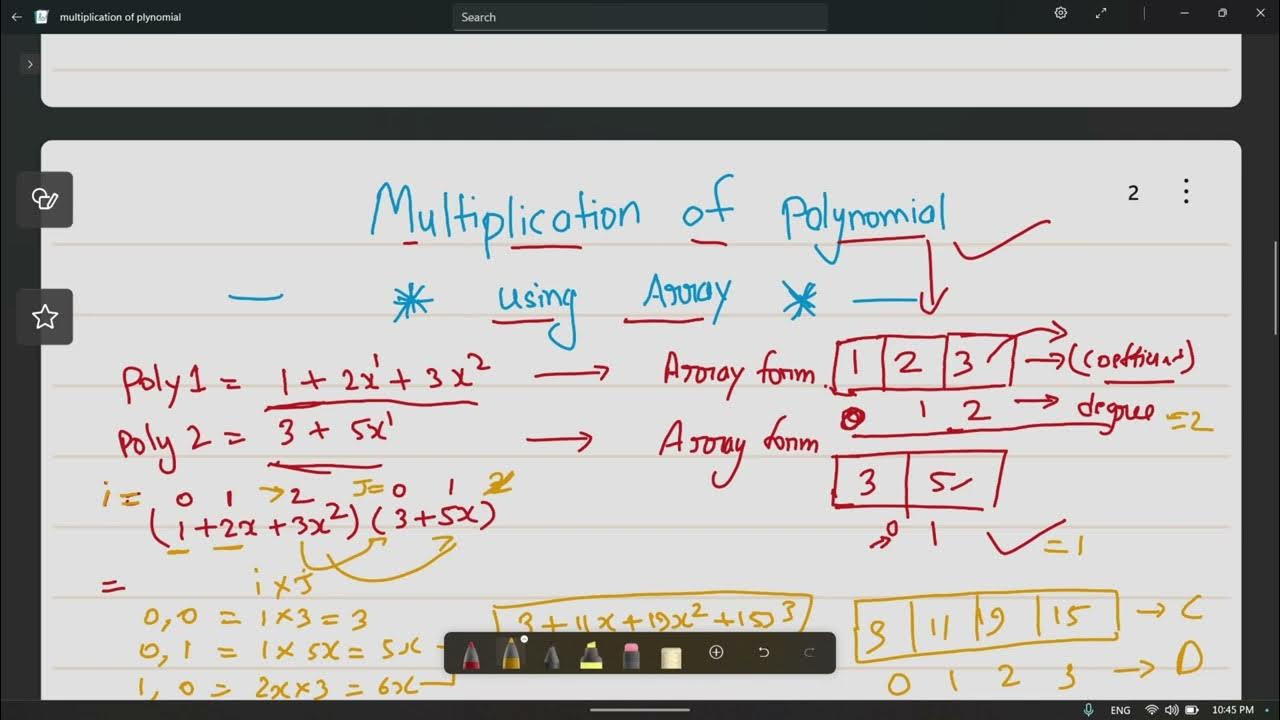 multiplication of plynomial
Search
2
Multiplication of Polynomial
— * using Array * —
Poly1 = 1 + 2x¹ + 3x² → Array form 1 2 3 → (coefficient)
0 1 2 → degree =2
Poly 2 = 3 + 5x¹ → Array form 3 5
0 1 =1
i = 0 1 → 2 J= 0 1 2
(1 + 2x + 3x²) (3 + 5x)
=
i x J
0,0 = 1 x 3 = 3
3 + 11x + 19x² + 15x³
3 11 19 15 → C
0,1 = 1 x 5x = 5x
0 1 2 3 → D
1,0 = 2x x 3 = 6x
ENG 10:45 PM